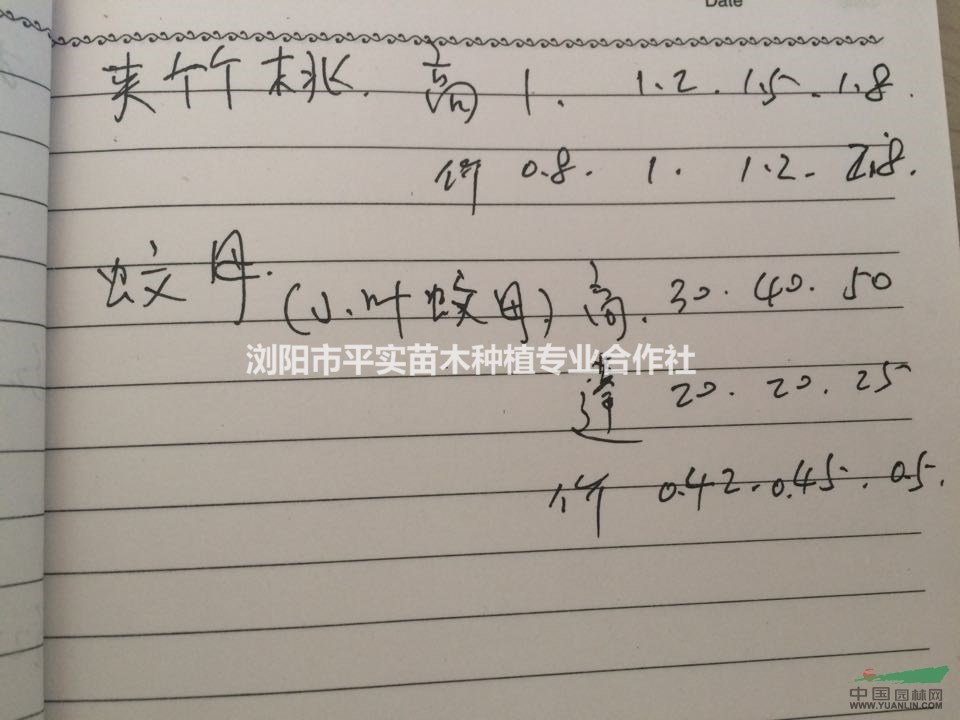 Date
夹竹桃. 高 1. 1.2. 1.5. 1.8.
价 0.8. 1. 1.2. 2.8.
蚊母. (小叶蚊母) 高. 30. 40. 50
浏阳市平实苗木种植专业合作社
蓬 20. 20. 25
价 0.42. 0.45. 0.5.
中国园林网
WWW.YUANLIN.COM